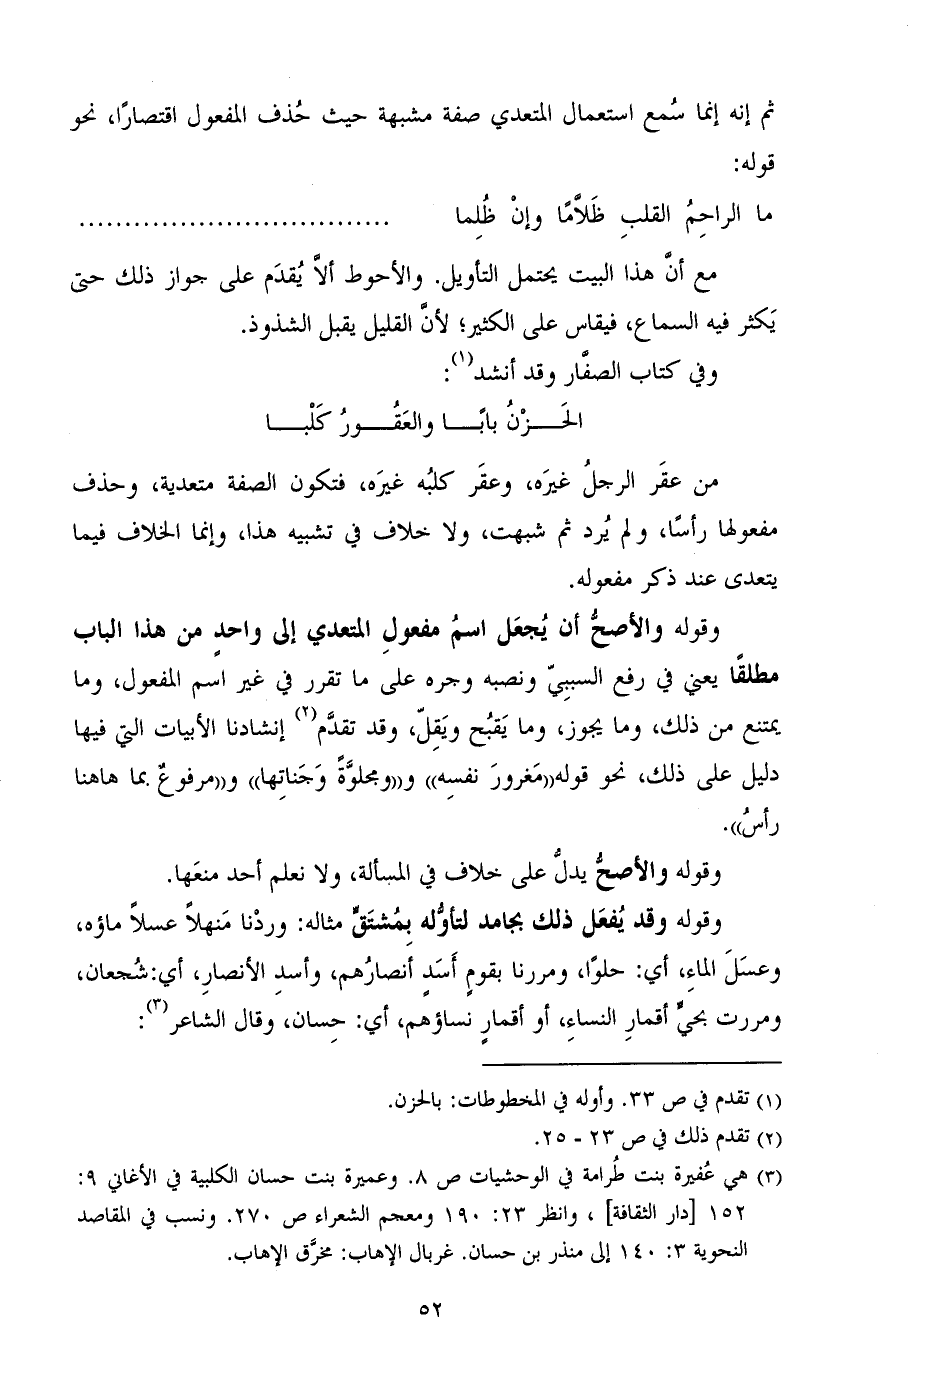 ثم إنه إنما سُمع استعمال المتعدي صفة مشبهة حيث حُذف المفعول اقتصارًا، نحو
قوله:
ما الراحِمُ القلبِ ظَلاَّمًا وإنْ ظُلِما ..................................
مع أنَّ هذا البيت يحتمل التأويل. والأحوط ألاَّ يُقدَم على جواز ذلك حتى
يَكثر فيه السماع، فيقاس على الكثير؛ لأنَّ القليل يقبل الشذوذ.
وفي كتاب الصفَّار وقد أنشد(١):
الحَــزْنُ بابًــا والعَقُــورُ كَلْبــا
من عقَر الرجلُ غيرَه، وعقَر كلبُه غيرَه، فتكون الصفة متعدية، وحذف
مفعولها رأسًا، ولم يُرد ثم شبهت، ولا خلاف في تشبيه هذا، وإنما الخلاف فيما
يتعدى عند ذكر مفعوله.
وقوله والأصحُّ أن يُجعَل اسمُ مفعولِ المتعدي إلى واحدٍ من هذا الباب
مطلقًا يعني في رفع السببِيّ ونصبه وجره على ما تقرر في غير اسم المفعول، وما
يمتنع من ذلك، وما يجوز، وما يَقبُح ويَقِلّ، وقد تقدَّم(٢) إنشادنا الأبيات التي فيها
دليل على ذلك، نحو قوله((مَغرورَ نفسِه)) و((ومجلوَّةً وَجَناتِها)) و((مرفوعٌ بما هاهنا
رأسُ)).
وقوله والأصحُّ يدلُّ على خلاف في المسألة، ولا نعلم أحد منعَها.
وقوله وقد يُفعَل ذلك بجامد لتأوُّله بِمُشتَقٍّ مثاله: وردْنا مَنهلاً عسلاً ماؤه،
وعسَلَ الماءِ، أي: حلوًا، ومررنا بقومٍ أَسَدٍ أنصارُهم، وأسدِ الأنصارِ، أي:شُجعان،
ومررت بحيٍّ أقمارِ النساءِ، أو أقمارٍ نساؤهم، أي: حِسان، وقال الشاعر(٣):
(١) تقدم في ص ٣٣. وأوله في المخطوطات: بالحزن.
(٢) تقدم ذلك في ص ٢٣ - ٢٥.
(٣) هي عُفيرة بنت طُرامة في الوحشيات ص ٨. وعميرة بنت حسان الكلبية في الأغاني ٩:
١٥٢ [دار الثقافة] ، وانظر ٢٣: ١٩٠ ومعجم الشعراء ص ٢٧٠. ونسب في المقاصد
النحوية ٣: ١٤٠ إلى منذر بن حسان. غربال الإهاب: مخرَّق الإهاب.
٥٢